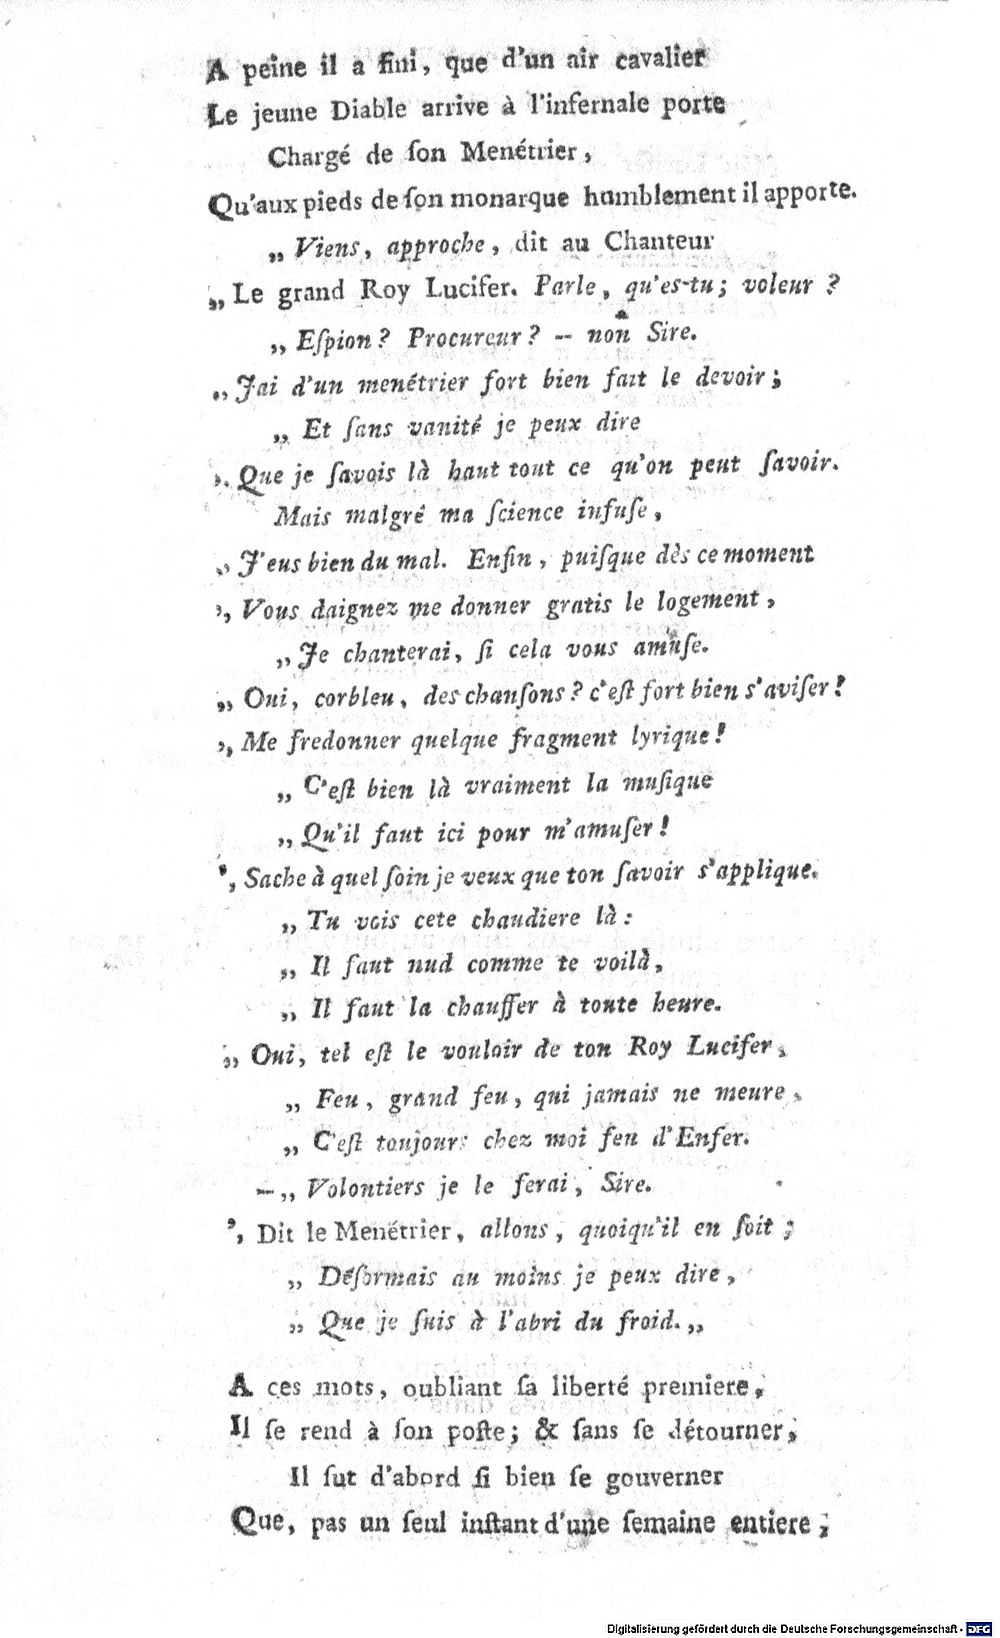 A peine il a fini, que d'un air cavalier
Le jeune Diable arrive à l'infernale porte
Chargé de ſon Menétrier,
Qu'aux pieds de ſon monarque humblement il apporte.
„ Viens, approche, dit au Chanteur
„ Le grand Roy Lucifer. Parle, qu'es-tu; voleur ?
„ Eſpion ? Procureur ? — non Sire.
„ Jai d'un menétrier fort bien fait le devoir;
„ Et ſans vanité je peux dire
„ Que je ſavois là haut tout ce qu'on peut ſavoir.
Mais malgré ma ſcience infuſe,
„ J'eus bien du mal. Enfin, puiſque dès ce moment
„ Vous daignez me donner gratis le logement,
„ Je chanterai, ſi cela vous amuſe.
„ Oui, corbleu, des chanſons ? c'eſt fort bien s'aviſer !
„ Me fredonner quelque fragment lyrique !
„ C'eſt bien là vraiment la muſique
„ Qu'il faut ici pour m'amuſer !
„ Sache à quel ſoin je veux que ton ſavoir s'applique.
„ Tu vois cete chaudiere là :
„ Il faut nud comme te voilà,
„ Il faut la chauffer à toute heure.
„ Oui, tel eſt le vouloir de ton Roy Lucifer,
„ Feu, grand feu, qui jamais ne meure,
„ C'eſt toujours chez moi feu d'Enfer.
—„ Volontiers je le ferai, Sire.
„ Dit le Menétrier, allons, quoiqu'il en ſoit ;
„ Déſormais au moins je peux dire,
„ Que je ſuis à l'abri du froid.„
A ces mots, oubliant ſa liberté premiere,
Il ſe rend à ſon poſte; & ſans ſe détourner,
Il ſut d'abord ſi bien ſe gouverner
Que, pas un ſeul inſtant d'une ſemaine entiere ;
Digitalisierung gefördert durch die Deutsche Forschungsgemeinschaft - DFG